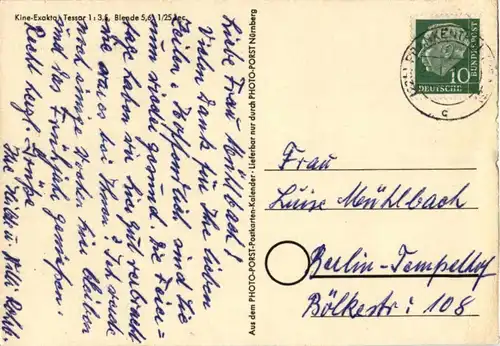 Kine-Exakta, Tessar 1:3,5, Blende 5,6, 1/25 sec.
Liebe Frau Mühlbach!
Vielen Dank für Ihre lieben
Zeilen. Hoffentlich sind Sie
nun wieder gesund. Die Feier-
tage haben wir hier gut verbracht.
Wie war es bei Ihnen? Ich werde
noch einige Wochen hier bleiben
und das Frühjahr genießen.
Recht herzl. Grüße
Ihre u. Willi
Aus dem PHOTO-PORST-Postkarten-Kalender · Lieferbar nur durch PHOTO-PORST Nürnberg
10
DEUTSCHE
BUNDESPOST
c
Frau
Luise Mühlbach
Berlin-Tempelhof
Bölkestr: 108